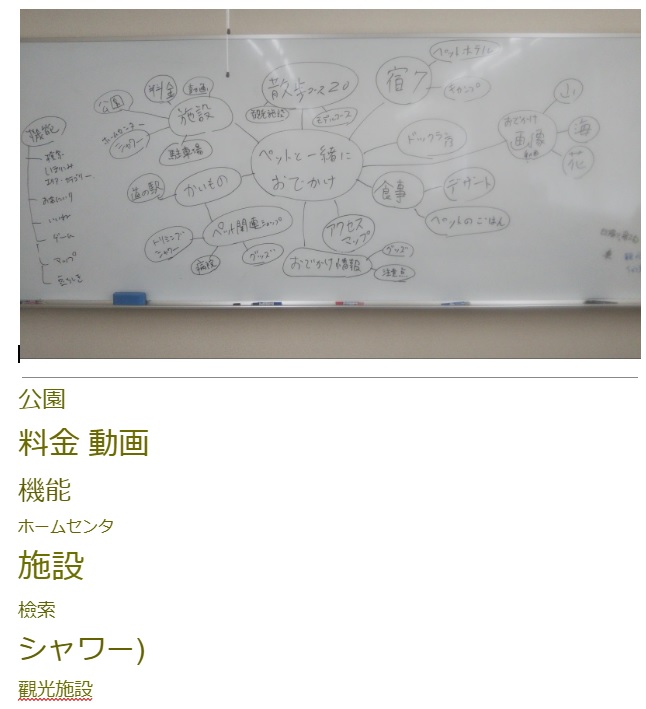 機能
検索
お気に入り
いいね
ゲーム
マップ
豆ちしき
公園
料金
動画
施設
ホームセンター
シャワー
駐車場
散歩コース20
観光施設
モデルコース
宿7
ペットホテル
キャンプ
ペットと一緒に
おでかけ
ドッグラン
おでかけ
画像
山
海
花
食事
デザート
ペットのごはん
かいもの
道の駅
ペット関連ショップ
トリミング
シャワー
病院
グッズ
アクセス
マップ
おでかけ情報
グッズ
注意点
公園
料金 動画
機能
ホームセンタ
施設
檢索
シャワー)
觀光施設